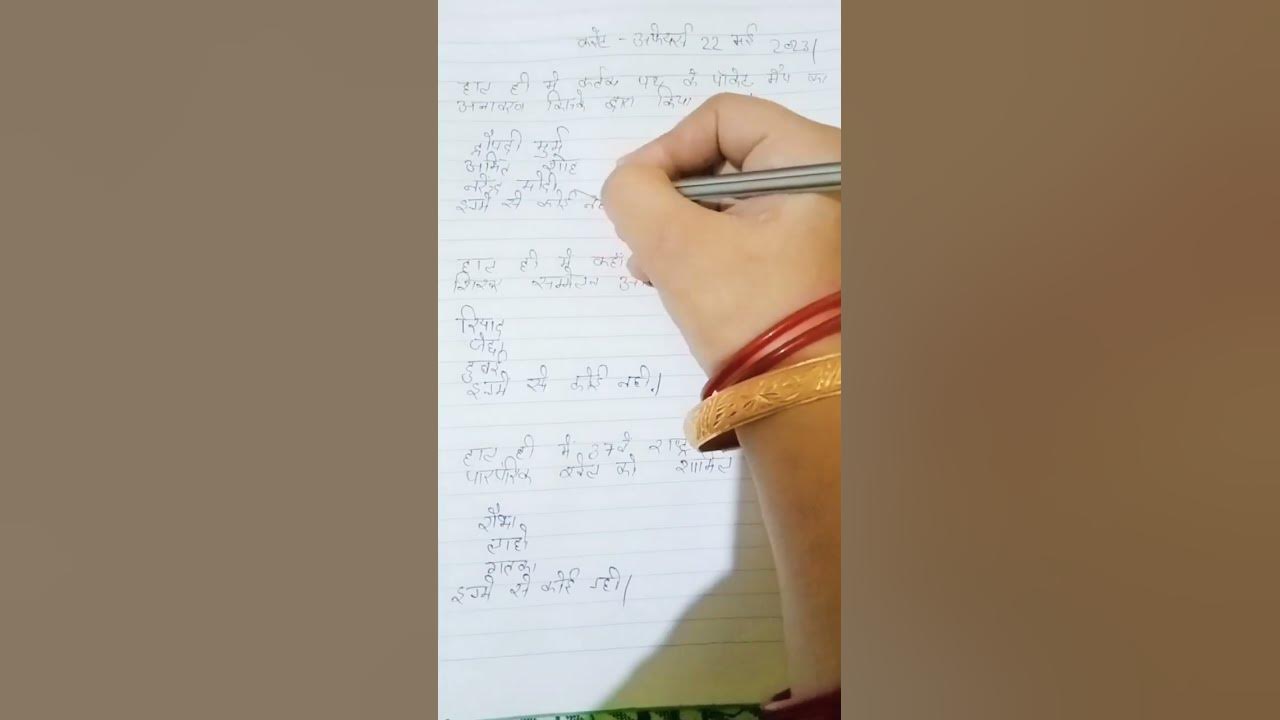 करेंट - अफेयर्स 22 मई 2023।
हाल ही में कर्तव्य पथ के पॉकेट मैप का
अनावरण किसके द्वारा किया
द्रौपदी मुर्मू
अमित शाह
नरेन्द्र मोदी
इनमें से कोई
हाल ही में कहाँ
शिखर सम्मेलन
रियाद
जेद्दा
दुबई
इनमें से कोई नहीं।
हाल ही में 37वें राष्ट्र
पारंपरिक को शामिल
लाहो
गतका
इनमें से कोई नही।